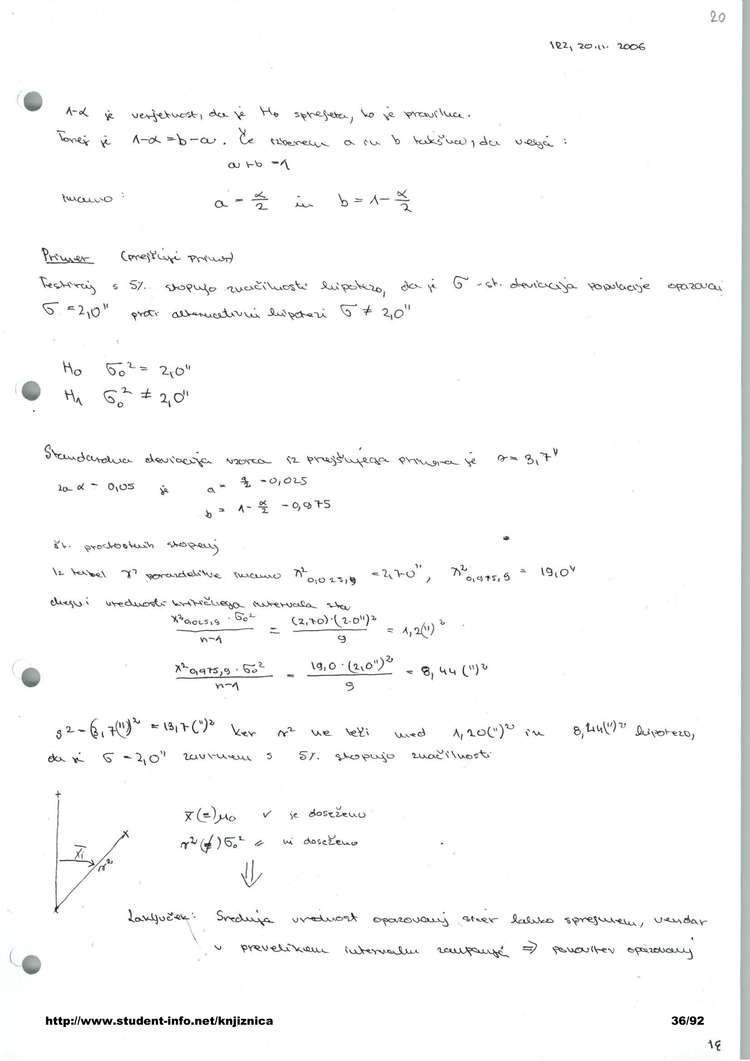 20
IRZ, 20.11. 2006
1-α je verjetnost, da je H₀ sprejeta, ko je pravilna.
Torej je 1-α = b-a. Če izberem a in b takšna, da velja :
a+b = 1
imamo : a = α/2 in b = 1 - α/2
Primer (prejšnji primer)
Testiraj s 5% stopnjo značilnosti hipotezo, da je σ -st. deviacija populacije opazovanj
σ = 2,0" proti alternativni hipotezi σ ≠ 2,0"
H₀ σ₀² = 2,0"
H₁ σ₀² ≠ 2,0"
Standardna deviacija vzorca iz prejšnjega primera je s = 3,7"
za α = 0,05 je a = α/2 = 0,025
b = 1 - α/2 = 0,975
št. prostostnih stopenj
Iz tabel χ² porazdelitve imamo χ²0,025,9 = 2,70", χ²0,975,9 = 19,0"
vrednosti kritičnega intervala sta
χ²0,025,9 · σ₀² / n-1 = (2,70)·(2.0")² / 9 = 1,2(")²
χ²0,975,9 · σ₀² / n-1 = 19,0 · (2,0")² / 9 = 8,44 (")²
s² = (3,7")² = 13,7(")² ker s² ne leži med 1,20(")² in 8,44(")² hipotezo,
da je σ = 2,0" zavrnem s 5% stopnjo značilnosti
x̄ (=) μ₀ ✓ je doseženo
s² (≠) σ₀² ni doseženo
⇓
x̄ᵢ
s²
Zaključek: Srednja vrednost opazovanj smer lahko sprejmem, vendar
v prevelikem intervalu zaupanja ⇒ ponovitev opazovanj
http://www.student-info.net/knjiznica 36/92